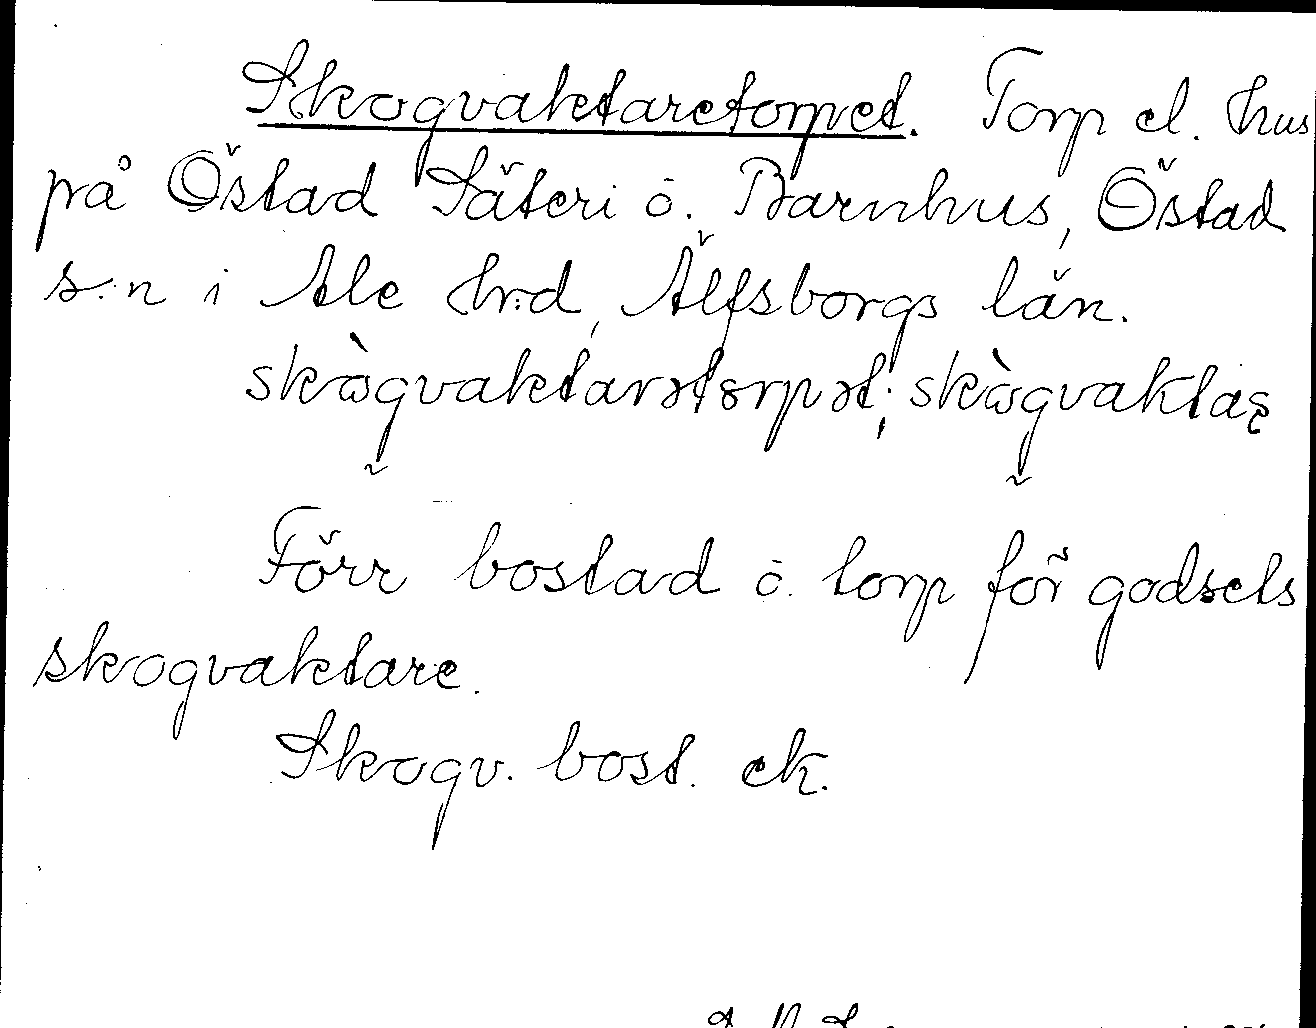 Skogvaktaretorpet. Torp el. hus
på Östad Säteri o. Barnhus, Östad
s:n i Ale hrd, Älfsborgs län.
skògvaktarətorpət; skògvaktaṣ
Förr bostad o. torp för godsets
skogvaktare.
Skogv. bost. ek.